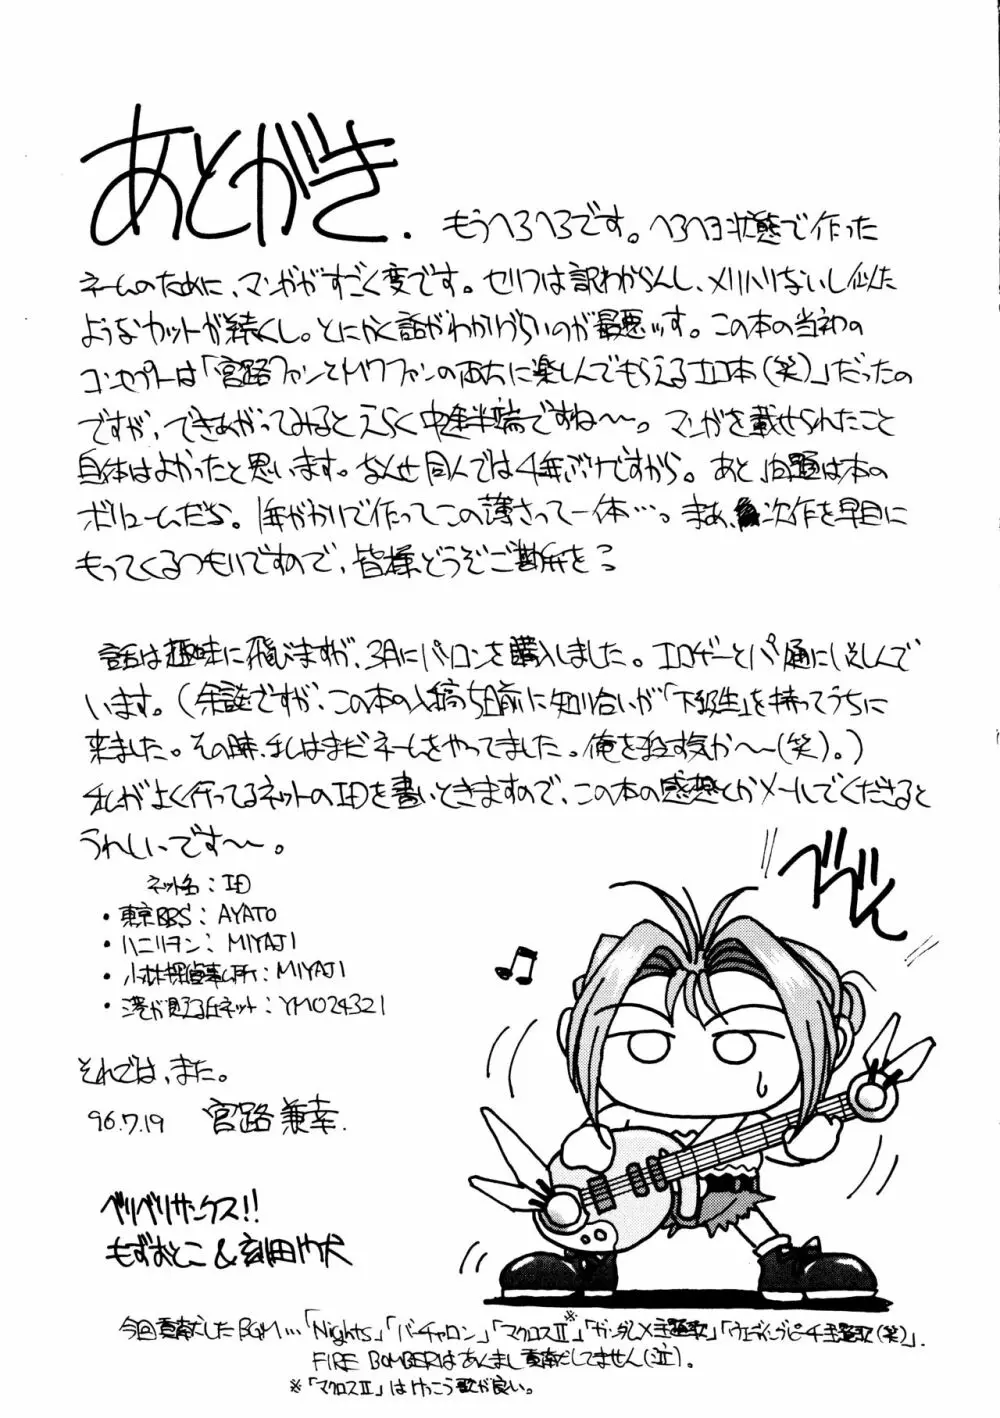 あとがき.
もうへろへろです。へろへろ状態で作った
ネームのために、マンガがすごく変です。セリフは訳わからんし、メリハリないし似た
ようなカットが続くし。とにかく話がわかりづらいのが最悪ッす。この本の当初の
コンセプトは「宮路ファンとMWファンの両方に楽しんでもらえるエロ本(笑)」だったの
ですが、できあがってみるとえらく中途半端ですね〜〜。マンガを載せられたこと
自体はよかったと思います。なんせ同人では4年ぶりですから。あと、問題は本の
ボリュームだな。1年がかりで作ってこの薄さって一体…。まあ、次作を早目に
もってくるつもりですので、皆様どうぞご勘弁を
話は趣味に飛びますが、3月にパソコンを購入しました。エロゲーとパソ通にいそしんで
います。(余談ですが、この本の入稿5日前に知り合いが「下級生」を持ってうちに
来ました。その時、私はまだネームをやってました。俺を殺す気か〜〜(笑)。)
私がよく行ってるネットのIDを書いときますので、この本の感想とかメールでくださると
うれしいです〜〜。
ネット名:ID
・東京BBS:AYATO
・ハニリヲン:MIYAJI
・小林探偵事ム所:MIYAJI
・港が見える丘ネット:YM024321
それでは、また。
96.7.19 宮路兼幸.
ベリベリサンクス!!
もずおとこ&刻田
♪
ベベん
今回貢献したBGM…「Nights」「バーチャロン」「マクロスⅡ」※「ガンダムX主題歌」「ウェディングピーチ主題歌(笑)」.
FIRE BOMBERはあんまし貢献してません(泣).
※「マクロスⅡ」はけっこう歌が良い。